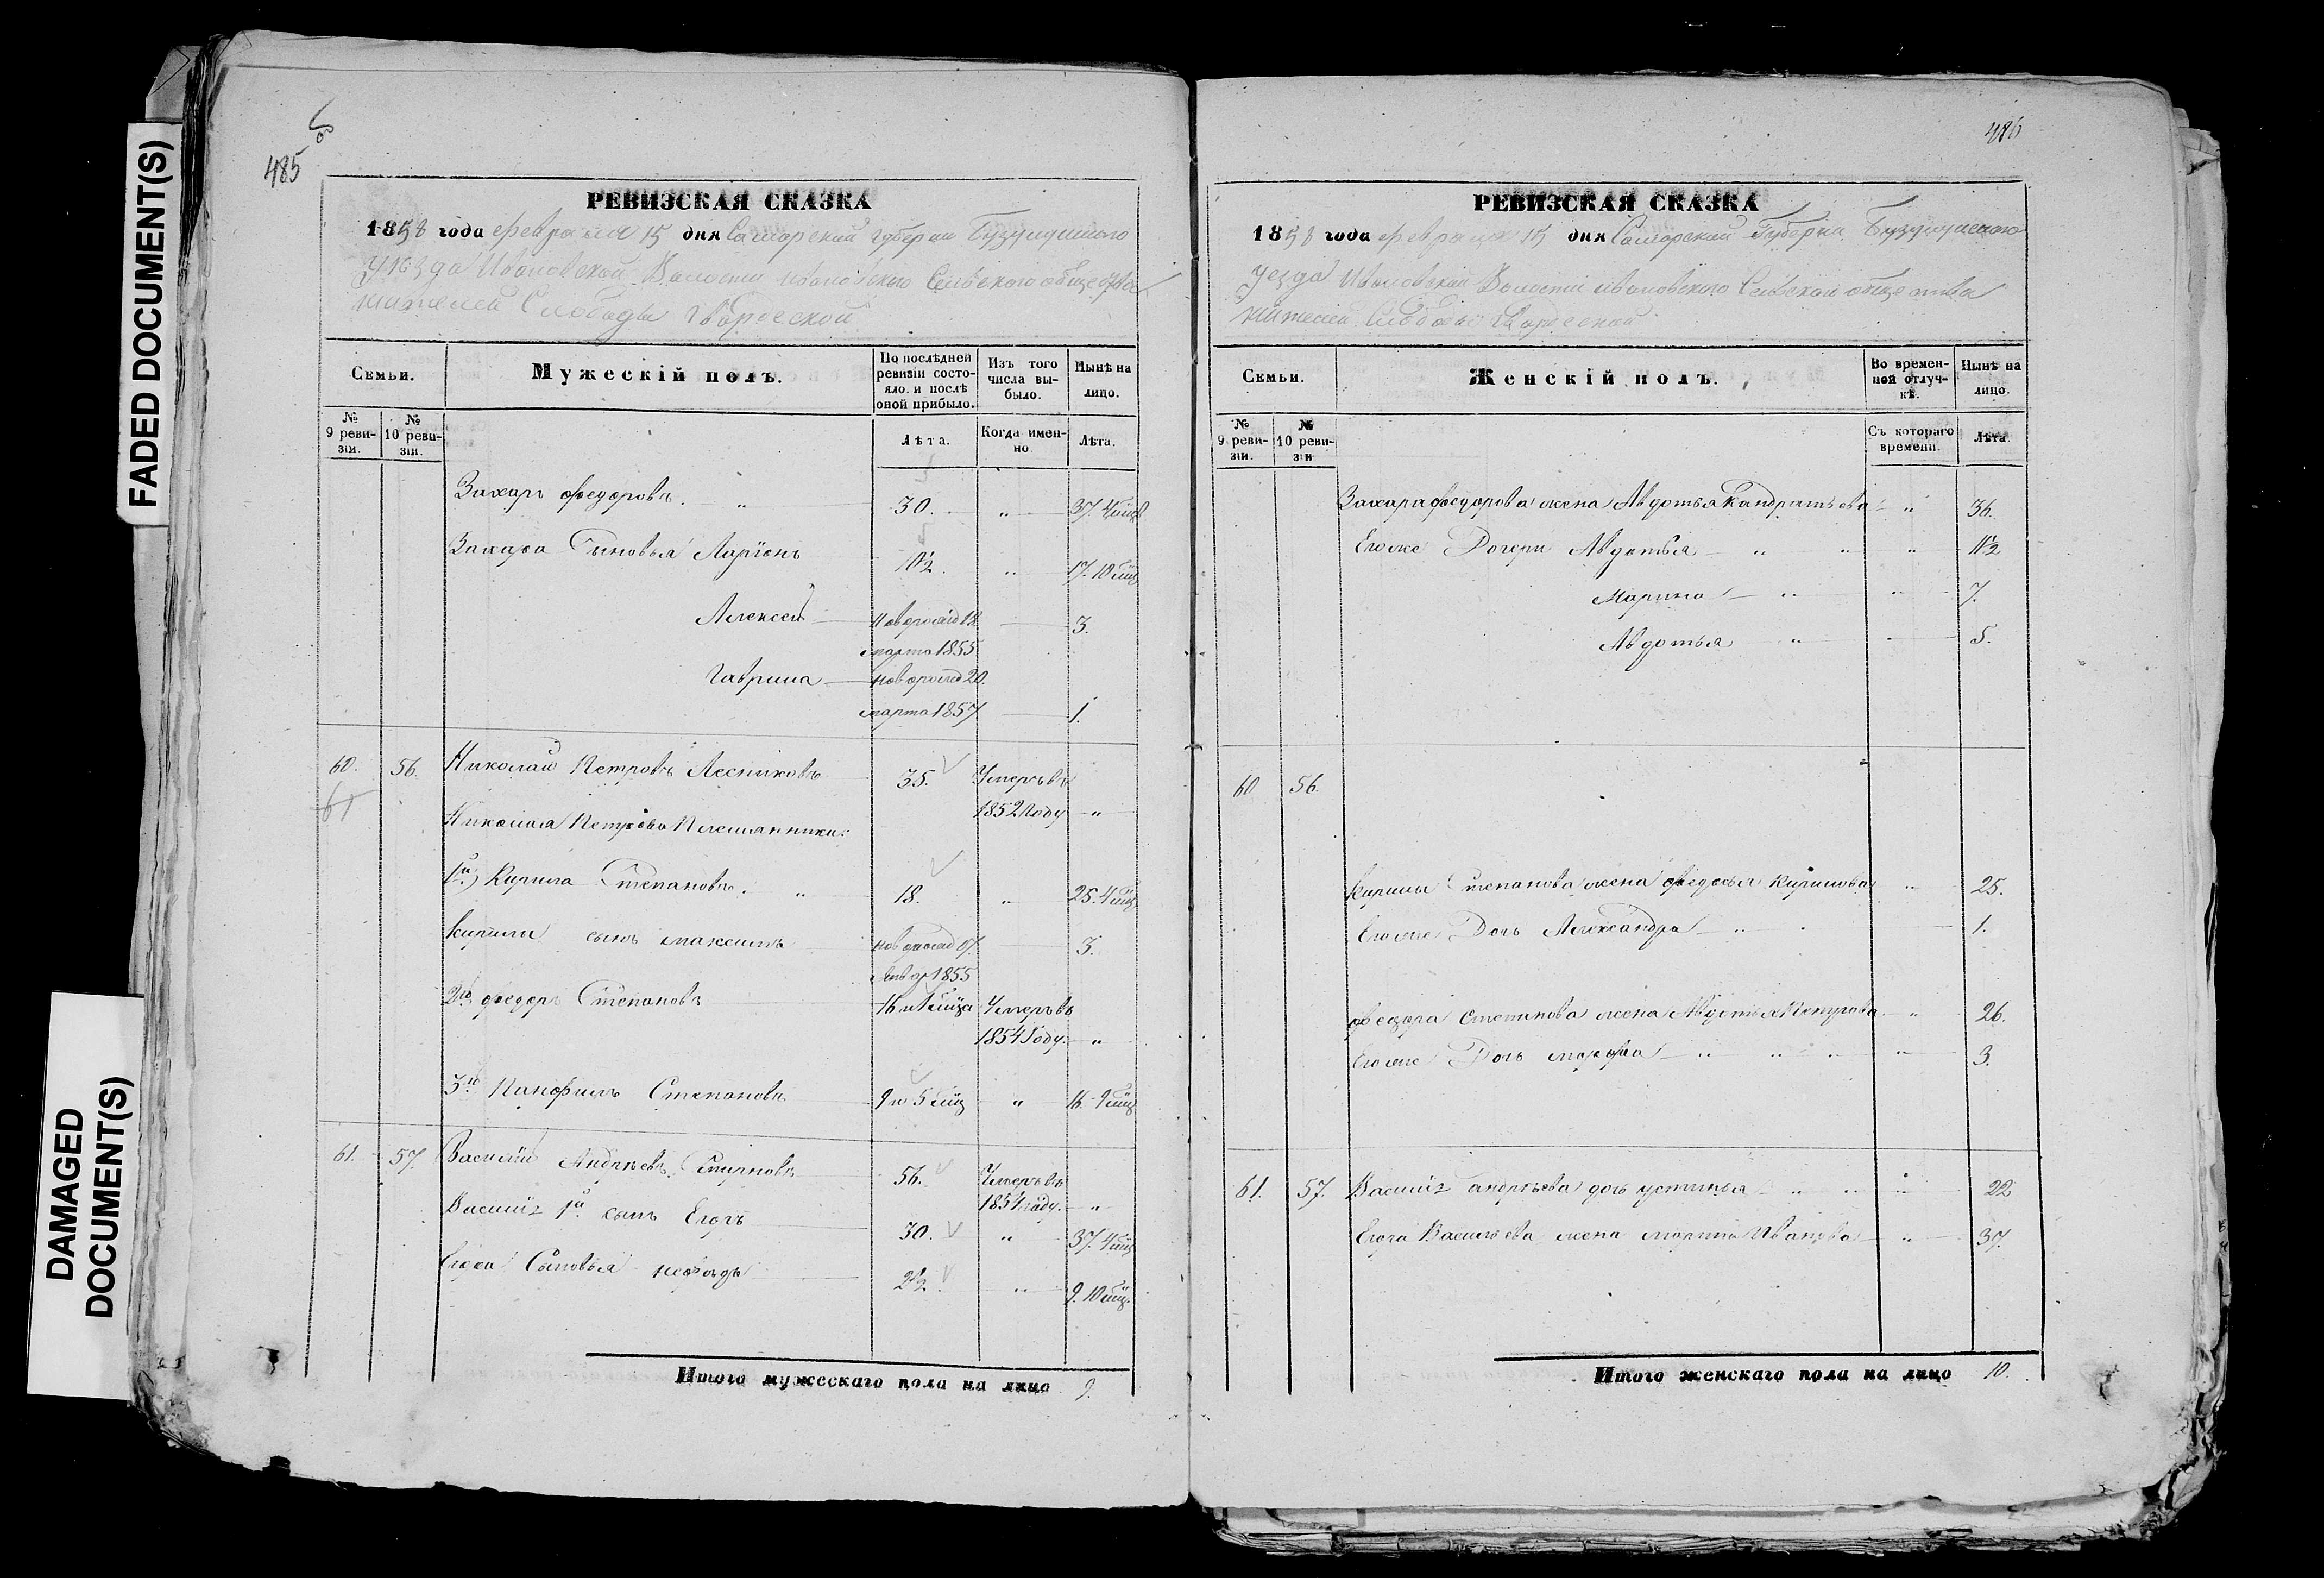 FADED DOCUMENT(S)
DAMAGED
DOCUMENT(S)
485 об
РЕВИЗСКАЯ СКАЗКА
1858 года февраля 15 дня Самарской губернии Бузулукского
уѣзда Ивановской Волости Ивановского Сельского общества
жителей Слободы Гвардеской
Семьи.
Мужескій полъ.
По послѣдней ревизіи состояло. и послѣ оной прибыло.
Изъ того числа выбыло.
Нынѣ на лицо.
№ 9 ревизіи.
№ 10 ревизіи.
Лѣта.
Когда именно
Лѣта.
Захаръ Федоровъ. " 30. " 37. 4 мѣц
Захара Синовья Ларіонъ 10½. " 17. 10 мѣц
Алексей новорожд 18 3.
марта 1855
Гаврила новорожд 20.
марта 1857 1.
60. 56. Николай Петровъ Лесниковъ 35. Умеръ въ
61 1852 Году "
Николая Петрова Племянники:
1й) Кирила Степановъ. " 18. " 25. 4 мѣц
Кирили сынъ Максимъ новорожд 17 3.
Январ 1855
2й Федоръ Степановъ 16 и 1 мѣца Умеръ въ
1854 Году. "
3й Панфилъ Степановъ 9 и 5 мѣц " 16. 9 мѣц
61. 57. Василій Андрѣевъ Смирновъ 56. Умеръ въ
1854 году. "
Василія 1й сынъ Егоръ 30. " 37. 4 мѣц
Егора Сыновья 2½. " 9. 10 мѣц.
Итого мужескаго пола на лицо 9.
486
РЕВИЗСКАЯ СКАЗКА
1858 года февраля 15 дня Самарской Губерни Бузулукского
уезда Ивановской Волости Ивановского Сельской общества
жителей Слободы Гвардеской
Семьи.
Женскій полъ.
Во временной отлучкѣ.
Нынѣ на лицо.
№ 9 ревизіи.
№ 10 ревизіи
Съ котораго времени.
Лѣта.
Захара Федорова жена Авдотья Кандратьева " 36.
Егоже Дочери Авдотья " " " 11½
Марина " " 7.
Авдотья " 5.
60 56.
Кирилы Степанова жена Федосья Кирилова " 25.
Егоже Дочь Александра " 1.
Федора Степанова жена Авдотья Петрова " 26.
Егоже Дочь Марфа " " " " 3.
61. 57. Василія андрѣева дочь устинья " " " 22
Егора Васильева жена Марина Иванова " 37.
Итого женскаго пола на лицо 10.